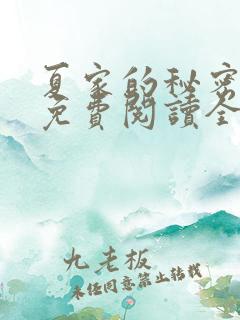 夏家的秘密
免費閱讀全
九老板
未经同意禁止转载